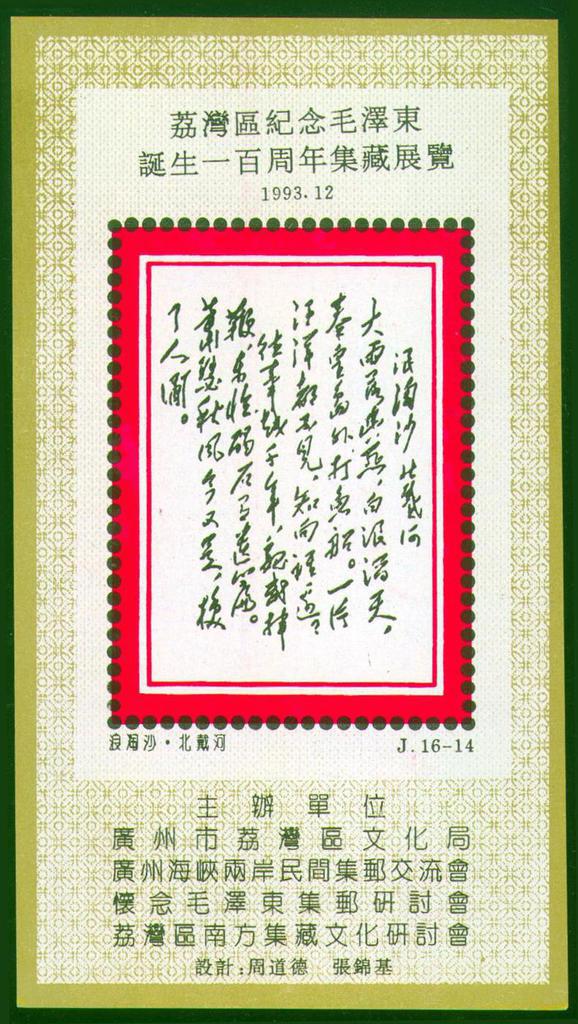 荔灣區紀念毛澤東
誕生一百周年集藏展覽
1993.12
浪淘沙 北戴河
大雨落幽燕,白浪滔天。
秦皇岛外打鱼船。一片
汪洋都不见,知向谁边?
往事越千年,魏武挥
鞭,东临碣石有遗篇。
萧瑟秋风今又是,换
了人间。
浪淘沙·北戴河
J.16-14
主辦單位
廣州市荔灣區文化局
廣州海峽兩岸民間集郵交流會
懷念毛澤東集郵研討會
荔灣區南方集藏文化研討會
設計:周道德 張錦基